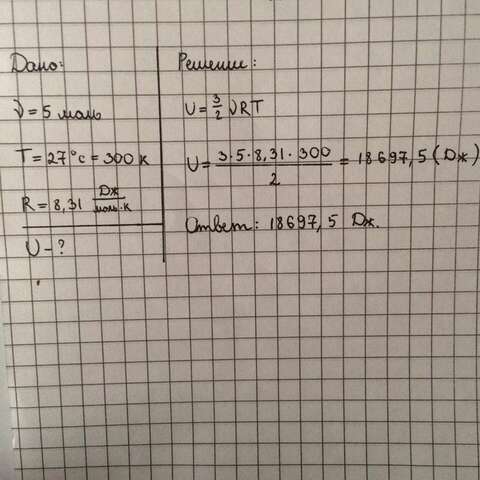 Дано:
ν = 5 моль
T = 27°c = 300 к
R = 8,31 Дж/моль·к
U - ?
Решение:
U = 3/2 νRT
U = 3·5·8,31·300/2 = 18697,5 (Дж)
Ответ: 18697,5 Дж.